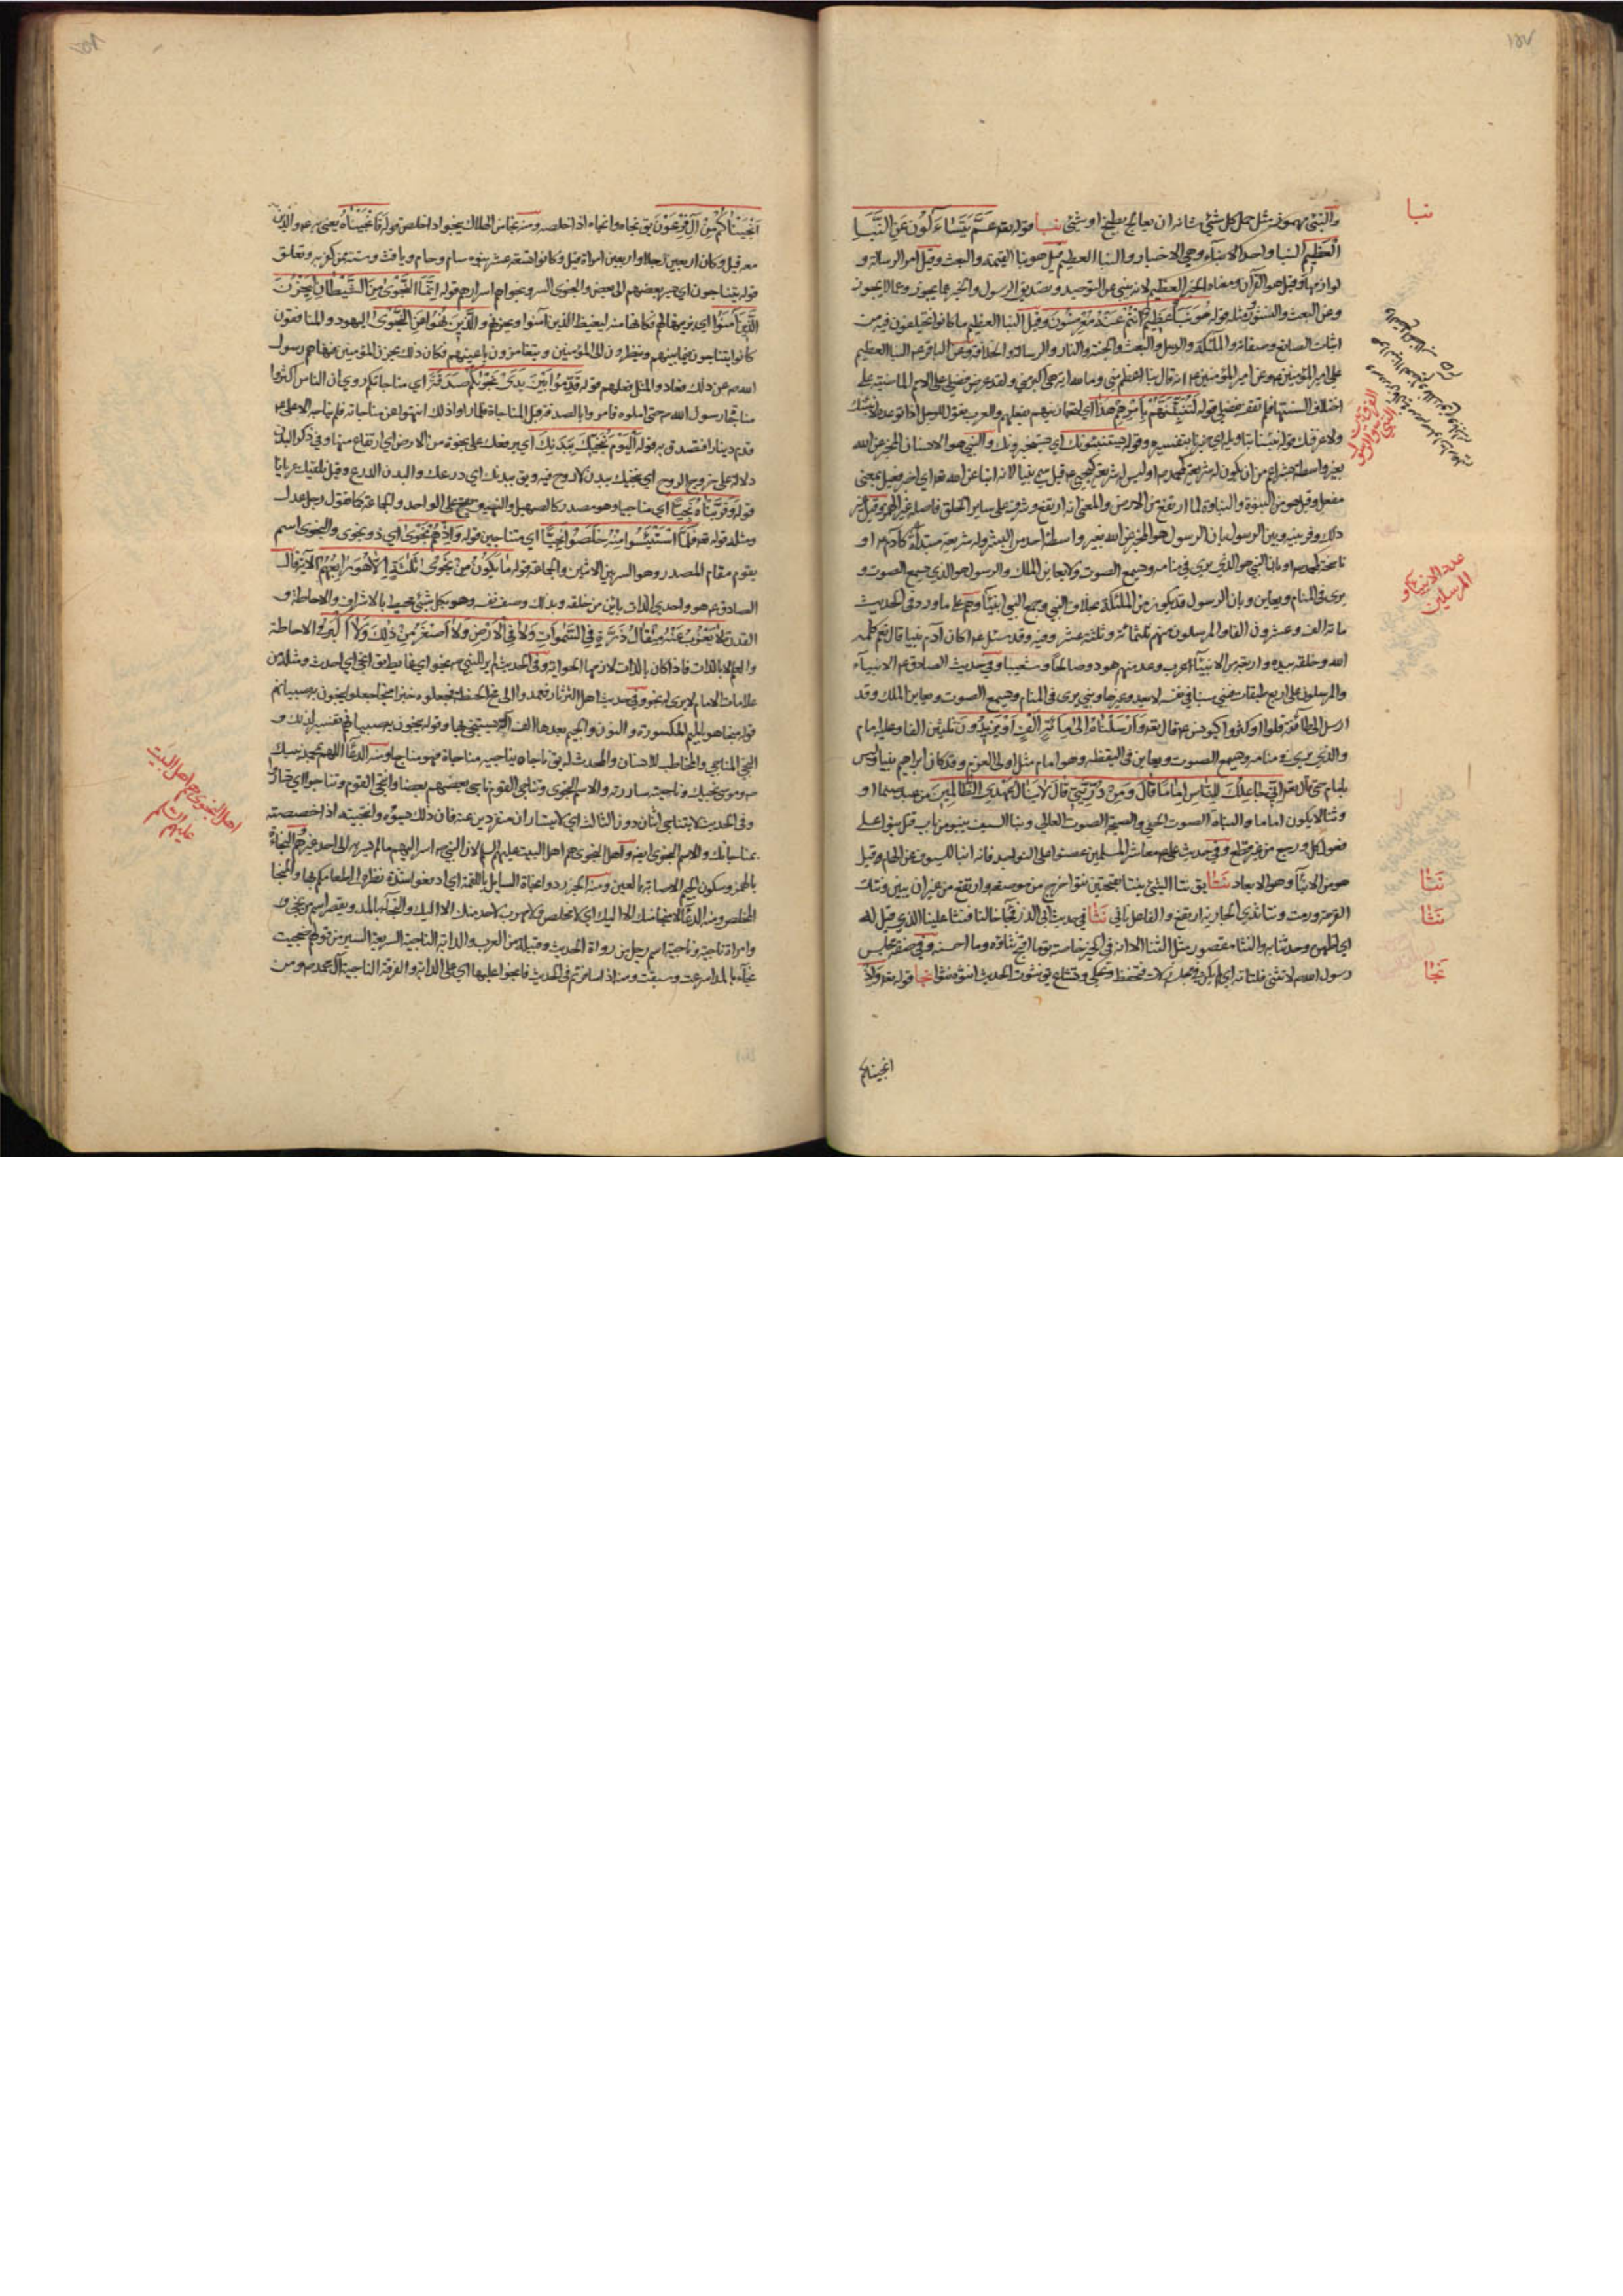 والنئ مهموز مثل حمل كل شئ شانه ان يعالج بطبخ او شئ نبا قوله تعه عَمَّ يَتَسَاءَلُونَ عَنِ النَّبَأِ
الْعَظِيمِ النبا واحد الانباء وهي الاخبار والنبا العظيم قيل هو نبا القيمة والبعث وقيل امر الرسالة و
لوازمها وقيل هو القرآن ومعناه الخبر العظيم لانه ينبئ عن التوحيد وتصديق الرسول والخبر عما يجوز وعما لا يجوز
وعن البعث والنشور ومثله قوله هُوَ نَبَأٌ عَظِيمٌ أَنْتُمْ عَنْهُ مُعْرِضُونَ وقيل النبا العظيم ما كانوا يختلفون فيه من
اثبات الصانع وصفاته والملئكة والرسل والبعث والجنة والنار والرسالة والخلافة وعن الباقر ع النبا العظيم
علي امير المؤمنين ع وعن امير المؤمنين ع انه قال ما لله نبا اعظم مني وما لله اية هي اكبر مني ولقد عرض فضلي على الامم الماضية على
اختلاف السنتها فلم تقر بفضلي قوله لَتُنَبِّئَنَّهُمْ بِأَمْرِهِمْ هَذَا اي لتجازينهم بفعلهم والعرب تقول للرجل اذا توعده لانبئنك
ولاعرفنك قوله نبئنا بتاويله اي خبرنا بتفسيره وقوله ويستنبئونك اي يستخبرونك والنبي هو الانسان المخبر عن الله
بغير واسطة بشر اعم من ان يكون له شريعة كمحمد ص او ليس له شريعة كيحيى ع قيل سمي نبيا لانه انبا عن الله تعه اي اخبر فعيل بمعنى
مفعل وقيل هو من النبوة والنباوة لما ارتفع من الارض والمعنى انه ارتفع وشرف على ساير الخلق فاصله غير الهمز وقيل غير
ذلك وفرق بينه وبين الرسول بان الرسول هو المخبر عن الله بغير واسطة احد من البشر وله شريعة مبتدأة كآدم ع او
ناسخة كمحمد ص وبان النبي هو الذي يرى في منامه ويسمع الصوت ولا يعاين الملك والرسول هو الذي يسمع الصوت و
يرى في المنام ويعاين وبان الرسول قد يكون من الملئكة بخلاف النبي وجمع النبي انبياء وهم على ما ورد في الحديث
مائة الف وعشرون الفا والمرسلون منهم ثلثمائة وثلثة عشر وفيه وقد سئل ع اكان آدم نبيا قال نعم كلمه
الله وخلقه بيده واربعة من الانبياء العرب وعد منهم هود وصالحا وشعيبا وفي حديث الصادق ع الانبياء
والمرسلون على اربع طبقات فنبي منبا في نفسه لا يعدو غيرها ونبي يرى في المنام ويسمع الصوت ويعاين الملك وقد
ارسل الى طائفة قلوا او كثروا كيونس ع قال تعه وَأَرْسَلْنَاهُ إِلَى مِائَةِ أَلْفٍ أَوْ يَزِيدُونَ ثلثين الفا وعليه امام
والذي يرى في منامه ويسمع الصوت ويعاين في اليقظة وهو امام مثل اولي العزم وقد كان ابراهيم نبيا وليس
بامام حتى قال تعه إِنِّي جَاعِلُكَ لِلنَّاسِ إِمَامًا قَالَ وَمِنْ ذُرِّيَّتِي قَالَ لَا يَنَالُ عَهْدِي الظَّالِمِينَ من عبد صنما او
وثنا لا يكون اماما والنباة الصوت الخفي والصيحة الصوت العالي ونبا السيف ينبو من باب قتل نبوا على
فعول كل ورجع من غير قطع وفي حديث علي ع معاشر المسلمين عضوا على النواجد فانه انبا للسيوف عن الهام وقيل
هو من الانباء وهو الابعاد نَتَا يق نتا الشئ ينتا بفتحتين نتوا خرج من موضعه وارتفع من غير ان يبين ونتات
القرحة ورمت ونتا ثدي الجارية ارتفع والفاعل ناتئ نَثَا في حديث ابي الذر فجاء خالنا فنثا علينا الذي قيل له
اي اظهره وحدثنا به والنثا مقصور مثل الثنا الا انه في الخير خاصة يق ما اقبح نثاؤه وما احسنه وفي صفة مجلس
رسول الله ص لا تنثى فلتاته اي لم يكن في مجلسه زلات فتحفظ وتحكى وتشاع يق نثوت الحديث انثوه نثوا نجا قوله تعه وَاِذْ
انجيناكم
نبا
الفرق بين
النبي والرسول
عدد الانبياء و
المرسلين
نَتَا
نَثَا
نَجَا
أَنْجَيْنَاكُمْ مِنْ آلِ فِرْعَوْنَ يق نجاه وانجاه اذا خلصه ومنه نجا من الهلاك ينجو اذا خلص قوله فَأَنْجَيْنَاهُ يعني نوح ع والذين
معه قيل وكان اربعين رجلا واربعين امراة وقيل وكانوا تسعة عشر بنوه سام وحام ويافث وستة ممن آمن به وتعلق
قوله يتناجون اي يسر بعضهم الى بعض والنجوى السر ونجواهم اسرارهم قوله إِنَّمَا النَّجْوَى مِنَ الشَّيْطَانِ لِيَحْزُنَ
الَّذِينَ آمَنُوا اي يزينها لهم فكانها منه ليغيظ الذين آمنوا ويحزنهم وَالَّذِينَ نُهُوا عَنِ النَّجْوَى اليهود والمنافقون
كانوا يتناجون فيما بينهم وينظرون الى المؤمنين ويتغامزون باعينهم فكان ذلك يحزن المؤمنين فنهاهم رسول
الله ص عن ذلك فعادوا لمثل فعلهم قوله قَدِّمُوا بَيْنَ يَدَيْ نَجْوَاكُمْ صَدَقَةً اي مناجاتكم روي ان الناس اكثروا
مناجاة رسول الله ص حتى املوه فامروا بالصدقة قبل المناجاة فلما راوا ذلك انتهوا عن مناجاته فلم يناجه الا علي ع
قدم دينارا فتصدق به قوله اَلْيَوْمَ نُنَجِّيكَ بِبَدَنِكَ اي نرفعك على نجوة من الارض اي ارتفاع منها وفي ذكر البدن
دلالة على خروج الروح اي ننجيك ببدن لا روح فيه ويق ببدنك اي درعك والبدن الدرع وقيل نلقيك عريانا
قوله وَقَرَّبْنَاهُ نَجِيًّا اي مناجيا وهو مصدر كالصهيل والنهيق يقع على الواحد والجماعة كما تقول رجل عدل
ومثله قوله تعه فَلَمَّا اسْتَيْئَسُوا مِنْهُ خَلَصُوا نَجِيًّا اي متناجين قوله وَإِذْ هُمْ نَجْوَى اي ذو نجوى والنجوى اسم
يقوم مقام المصدر وهو السر بين الاثنين والجماعة قوله مَا يَكُونُ مِنْ نَجْوَى ثَلَثَةٍ إِلَّا هُوَ رَابِعُهُمْ الآية قال
الصادق ع هو واحدي الذات بائن من خلقه وبذلك وصف نفسه وهو بكل شئ محيط بالاشراف والاحاطة و
القدرة لَا يَعْزُبُ عَنْهُ مِثْقَالُ ذَرَّةٍ فِي السَّمَوَاتِ وَلَا فِي الْأَرْضِ وَلَا أَصْغَرُ مِنْ ذَلِكَ وَلَا أَكْبَرُ الاحاطة
والعلم لا بالذات فاذا كان بالذات لزمها الحواية وفي الحديث لم ير للنبي ص نجو اي غايط يق انجى اي احدث ومثله من
علامات الامام لا يرى له نجو وفي حديث اهل الثرثار فعمدوا الى مخ الحنطة فجعلوه خبزا منجا جعلوا ينجون به صبيانهم
النجي المناجي والمخاطب للانسان والمحدث له يق ناجاه يناجيه مناجاة فهو مناج ومنه الدعاء اللهم بمحمد نبيك
وموسى نجيك وناجيته ساررته والاسم النجوى وتناجى القوم ناجى بعضهم بعضا وانتجى القوم وتناجوا اي تساروا
وفي الحديث لا يتناجى اثنان دون الثالث اي لا يتساران منفردين عنه فان ذلك يسوؤه وانتجيته اذا اخصصته
بمناجاتك والاسم النجوى ايضا واهل النجوى هم اهل البيت عليهم السلم لان النبي ص اسر اليهم ما لم يسر به الى احد غيرهم والنجأة
بالهمز وسكون الجيم الاصابة بالعين ومنه الخبر ردوا نجأة السايل باللقمة اي ادفعوا شدة نظره الى طعامكم بها والمنجا
المخلص ومنه الدعاء لا منجا منك الا اليك اي لا مخلص ولا مهرب لاحد منك الا اليك والنجاء بالمد ويقصر اسم من نجى و
وامراة ناجية وناجية اسم رجل من رواة الحديث وقبيلة من العرب والدابة الناجية السريعة السير من قولهم نجيت
نجاء بالمد اسرعت وسبقت ومنه اذا سافرتم في الحديث فانجوا عليها اي على الدابة والفرقة الناجية آل محمد ص ومن
اهل النجوى هم اهل البيت
عليهم السلم